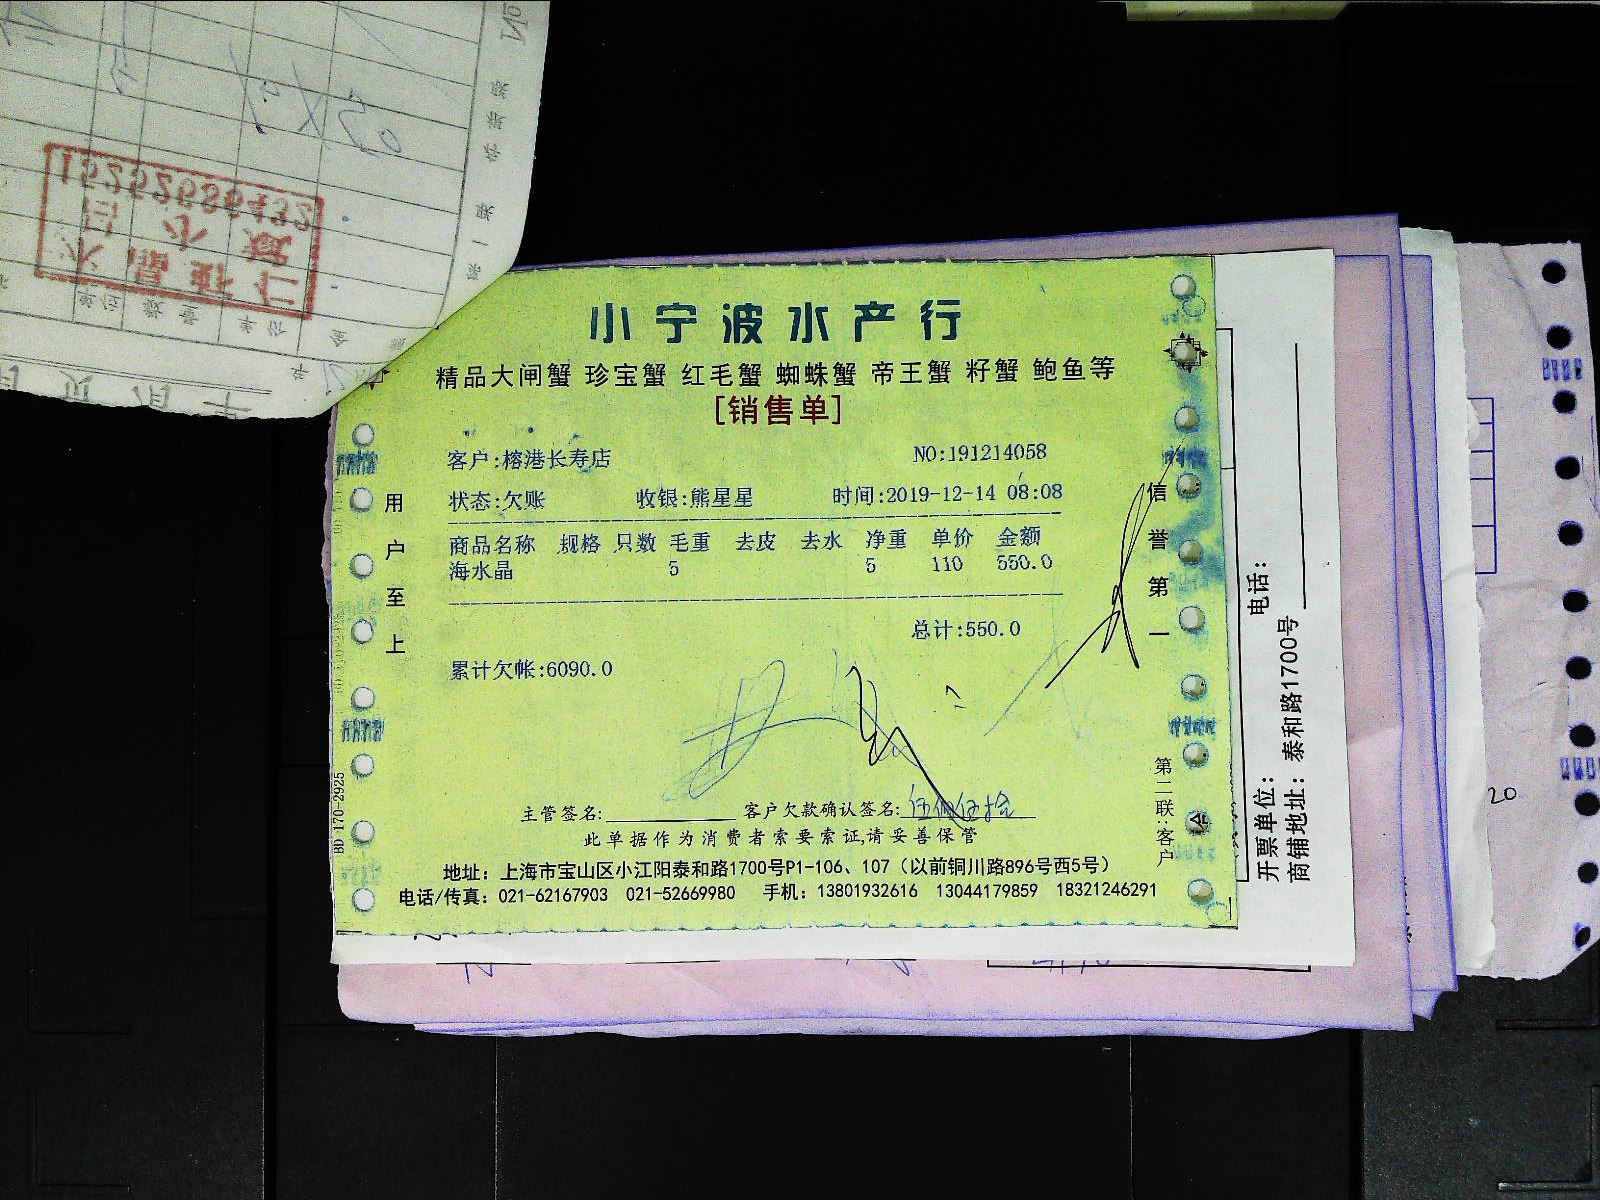 小宁波水产行
精品大闸蟹 珍宝蟹 红毛蟹 蜘蛛蟹 帝王蟹 籽蟹 鲍鱼等
[销售单]
客户:榕港长寿店 NO:191214058
状态:欠账 收银:熊星星 时间:2019-12-14 08:08
商品名称 规格 只数 毛重 去皮 去水 净重 单价 金额
海水晶 5 5 110 550.0
总计:550.0
累计欠帐:6090.0
用户至上
信誉第一
第二联:客户
主管签名: 客户欠款确认签名:伍佰伍拾
此单据作为消费者索要索证,请妥善保管
地址：上海市宝山区小江阳泰和路1700号P1-106、107（以前铜川路896号西5号）
电话/传真：021-62167903 021-52669980 手机：13801932616 13044179859 18321246291
BD 170-2925
电话：
开票单位：
商铺地址：泰和路1700号
20
15252686432